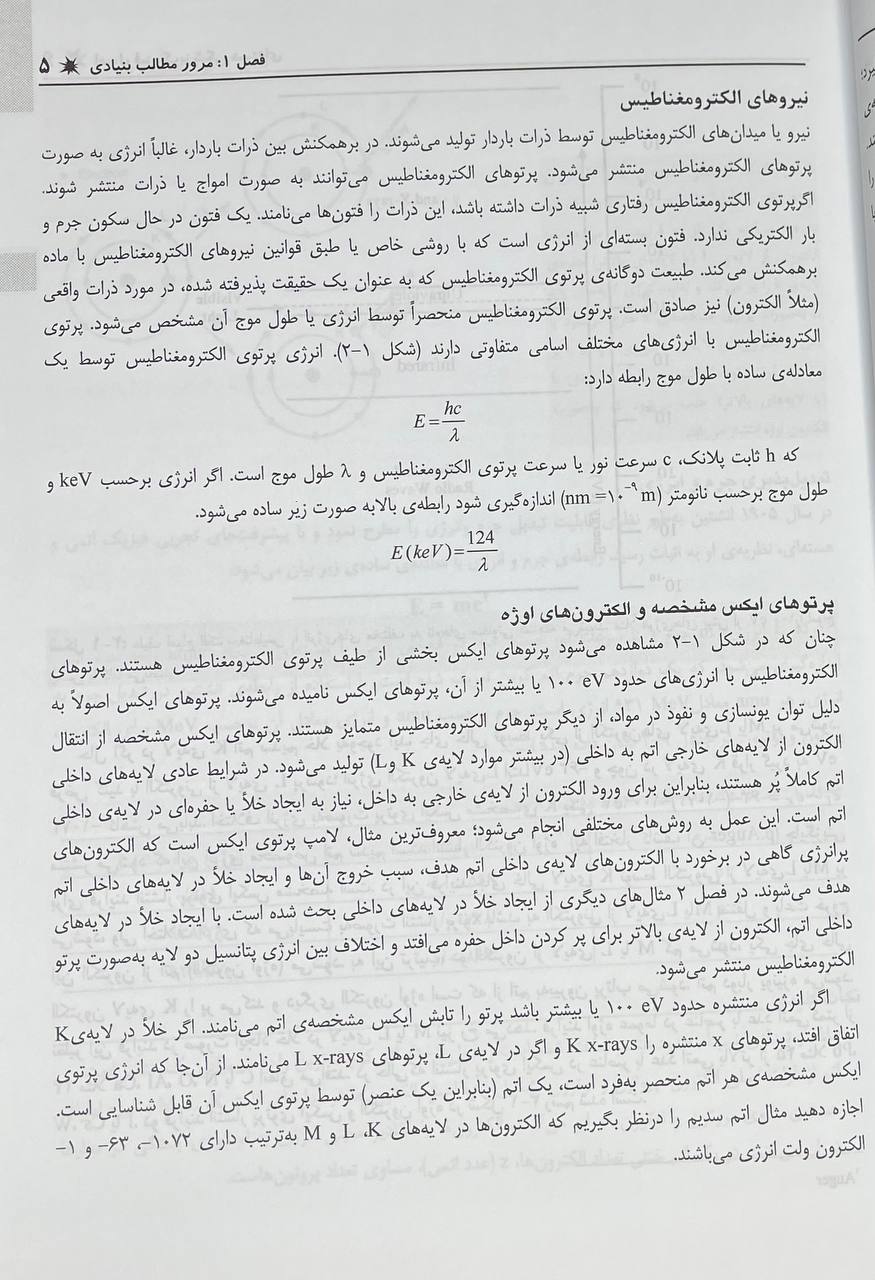 فصل ۱: مرور مطالب بنیادی ۵
نیروهای الکترومغناطیس
نیرو یا میدان‌های الکترومغناطیس توسط ذرات باردار تولید می‌شوند. در برهمکنش بین ذرات باردار، غالباً انرژی به صورت
پرتوهای الکترومغناطیس منتشر می‌شود. پرتوهای الکترومغناطیس می‌توانند به صورت امواج یا ذرات منتشر شوند.
اگرپرتوی الکترومغناطیس رفتاری شبیه ذرات داشته باشد، این ذرات را فتون‌ها می‌نامند. یک فتون در حال سکون جرم و
بار الکتریکی ندارد. فتون بسته‌ای از انرژی است که با روشی خاص یا طبق قوانین نیروهای الکترومغناطیس با ماده
برهمکنش می‌کند. طبیعت دوگانه‌ی پرتوی الکترومغناطیس که به عنوان یک حقیقت پذیرفته شده، در مورد ذرات واقعی
(مثلاً الکترون) نیز صادق است. پرتوی الکترومغناطیس منحصراً توسط انرژی یا طول موج آن مشخص می‌شود. پرتوی
الکترومغناطیس با انرژی‌های مختلف اسامی متفاوتی دارند (شکل ۱-۲). انرژی پرتوی الکترومغناطیس توسط یک
معادله‌ی ساده با طول موج رابطه دارد:
E = hc/λ
که h ثابت پلانک، c سرعت نور یا سرعت پرتوی الکترومغناطیس و λ طول موج است. اگر انرژی برحسب keV و
طول موج برحسب نانومتر (nm =۱۰⁻⁹ m) اندازه‌گیری شود رابطه‌ی بالابه صورت زیر ساده می‌شود.
E (keV) = 124/λ
پرتوهای ایکس مشخصه و الکترون‌های اوژه
چنان که در شکل ۱-۲ مشاهده می‌شود پرتوهای ایکس بخشی از طیف پرتوی الکترومغناطیس هستند. پرتوهای
الکترومغناطیس با انرژی‌های حدود ۱۰۰ eV یا بیشتر از آن، پرتوهای ایکس نامیده می‌شوند. پرتوهای ایکس اصولاً به
دلیل توان یونسازی و نفوذ در مواد، از دیگر پرتوهای الکترومغناطیس متمایز هستند. پرتوهای ایکس مشخصه از انتقال
الکترون از لایه‌های خارجی اتم به داخلی (در بیشتر موارد لایه‌ی K وL) تولید می‌شود. در شرایط عادی لایه‌های داخلی
اتم کاملاً پُر هستند، بنابراین برای ورود الکترون از لایه‌ی خارجی به داخل، نیاز به ایجاد خلأ یا حفره‌ای در لایه‌ی داخلی
اتم است. این عمل به روش‌های مختلفی انجام می‌شود؛ معروف‌ترین مثال، لامپ پرتوی ایکس است که الکترون‌های
پرانرژی گاهی در برخورد با الکترون‌های لایه‌ی داخلی اتم هدف، سبب خروج آن‌ها و ایجاد خلأ در لایه‌های داخلی اتم
هدف می‌شوند. در فصل ۲ مثال‌های دیگری از ایجاد خلأ در لایه‌های داخلی بحث شده است. با ایجاد خلأ در لایه‌های
داخلی اتم، الکترون از لایه‌ی بالاتر برای پر کردن داخل حفره می‌افتد و اختلاف بین انرژی پتانسیل دو لایه به‌صورت پرتو
الکترومغناطیس منتشر می‌شود.
اگر انرژی منتشره حدود ۱۰۰ eV یا بیشتر باشد پرتو را تابش ایکس مشخصه‌ی اتم می‌نامند. اگر خلأ در لایه‌ی K
اتفاق افتد، پرتوهای x منتشره را K x-rays و اگر در لایه‌ی L، پرتوهای L x-rays می‌نامند. از آن‌جا که انرژی پرتوی
ایکس مشخصه‌ی هر اتم منحصر به‌فرد است، یک اتم (بنابراین یک عنصر) توسط پرتوی ایکس آن قابل شناسایی است.
اجازه دهید مثال اتم سدیم را درنظر بگیریم که الکترون‌ها در لایه‌های K، L و M به‌ترتیب دارای ۱۰۷۲-، ۶۳- و ۱-
الکترون ولت انرژی می‌باشند.